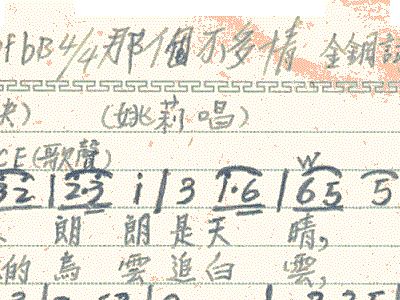 of bB 4/4 那個不多情 金鋼
) (姚莉唱)
CE (歌聲)
32 | 2·3 i | 3 1·6 | 65 5
朗 朗 是 天 晴,
的 烏 雲 追 白 雲,